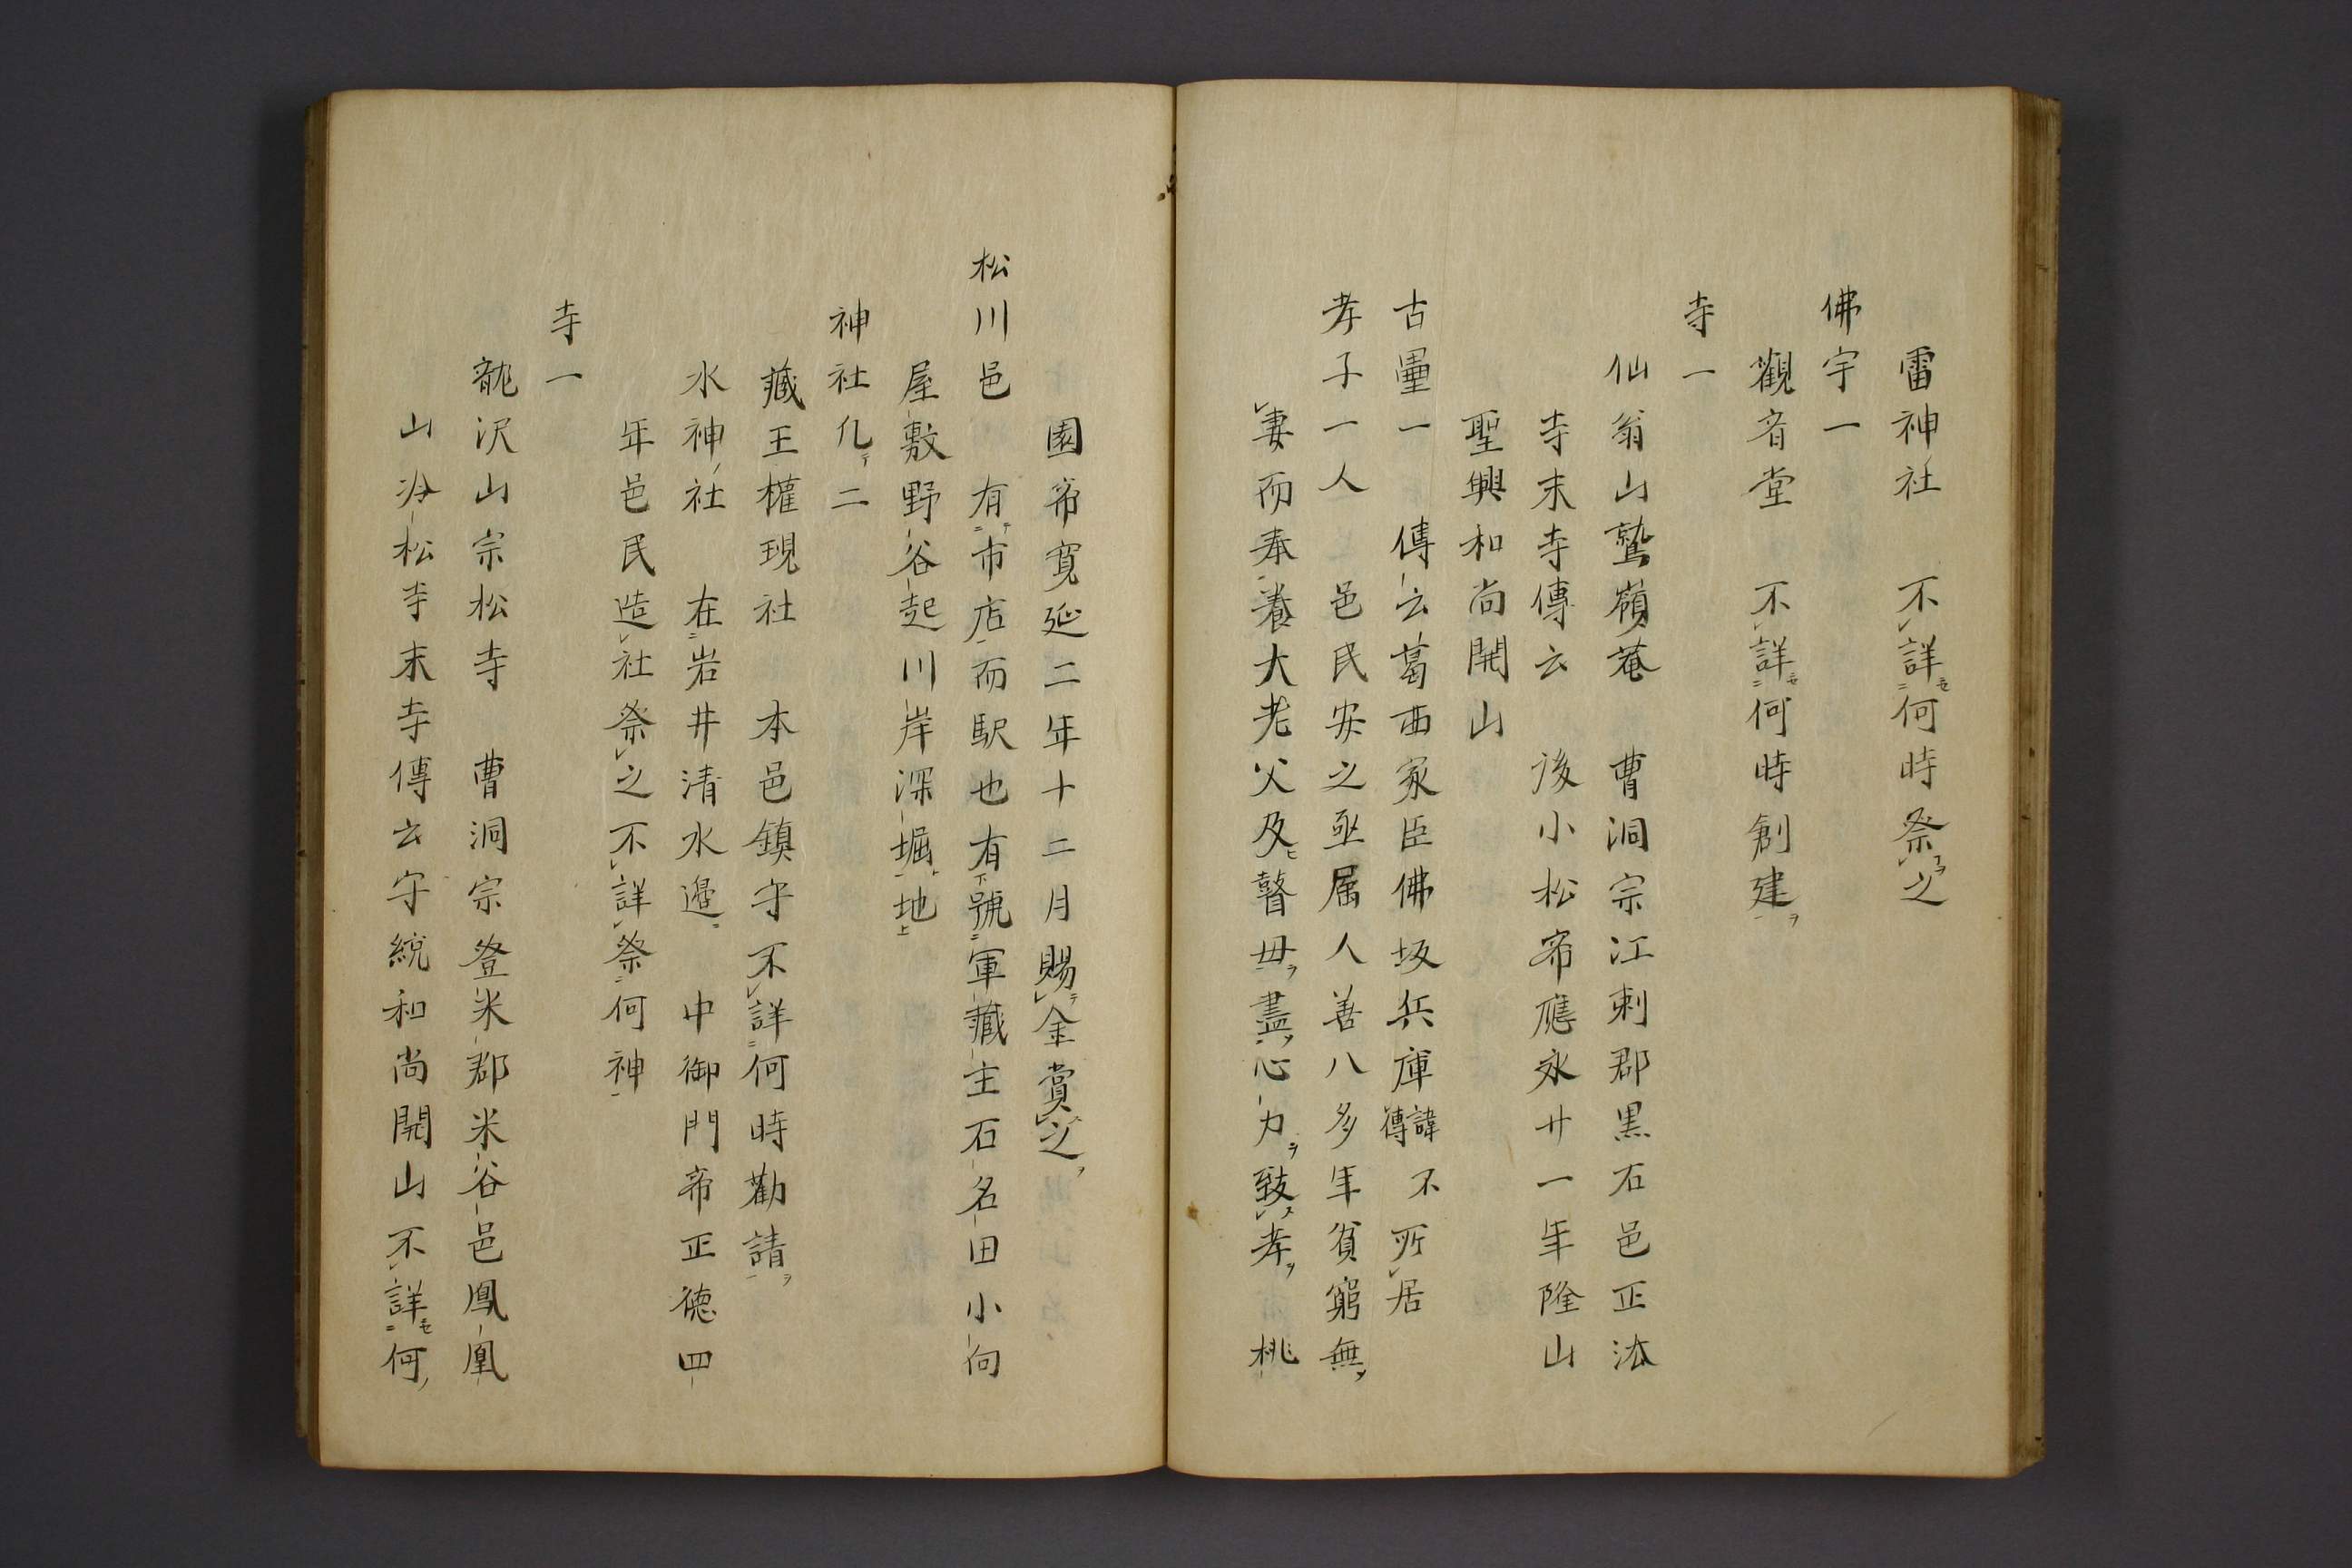 雷神社　不詳何時祭之
佛宇一
觀音堂　不詳何時創建
寺一
仙翁山鷲嶺菴　曹洞宗江刺郡黒石邑正法
寺末寺傳云　後小松帝應永廿一年隆山
聖興和尚開山
古壘一　傳云葛西家臣佛坂兵庫諱不傳所居
孝子一人　邑民安之亟属人善八多年貧窮無
妻而奉養大老父及瞽母盡心力致孝　桃
園帝寛延二年十二月賜金賞之
松川邑　有市店而駅也有號軍藏主石名田小向
屋敷野谷起川岸深堀地
神社凡二
藏王權現社　本邑鎮守不詳何時勸請
水神社　在岩井清水邊　中御門帝正德四
年邑民造社祭之不詳祭何神
寺一
龍沢山宗松寺　曹洞宗登米郡米谷邑鳳凰
山冷松寺末寺傳云守統和尚開山不詳何